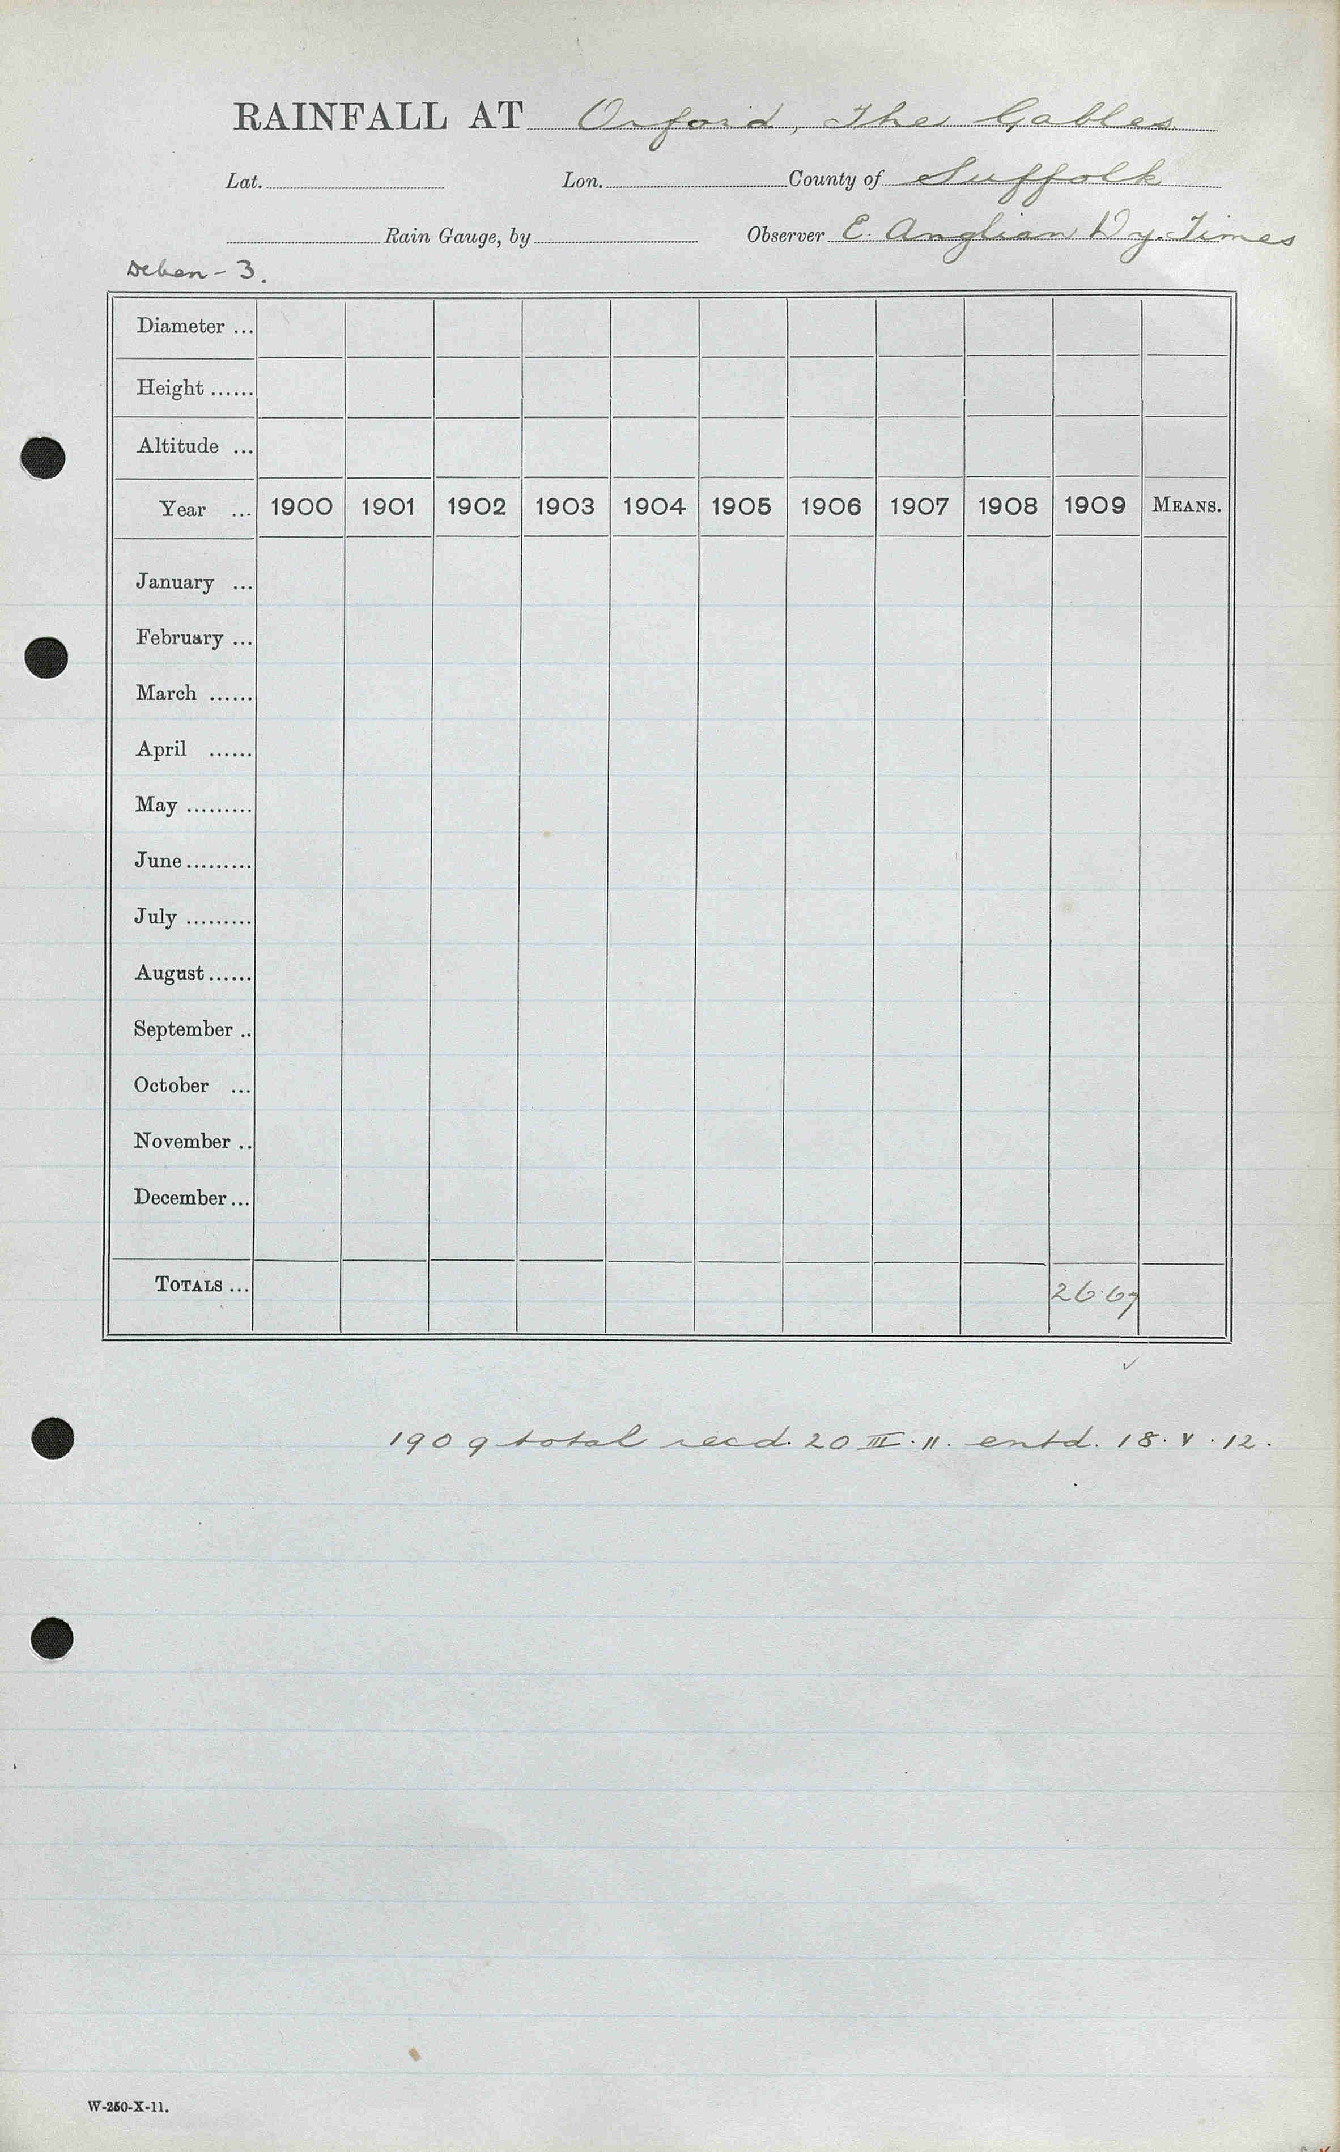 RAINFALL AT Orford, The Gables
Lat. Lon. County of Suffolk
Rain Gauge, by Observer E. Anglian Dy. Times
Deben - 3.
Diameter ...
Height ......
Altitude ...
Year ... 1900 1901 1902 1903 1904 1905 1906 1907 1908 1909 MEANS.
January ...
February ...
March ......
April ......
May .........
June .........
July .........
August ......
September ..
October ...
November ..
December ...
TOTALS ... 26.67
✓
1909 total recd. 20 III. 11. entd. 18. V. 12.
W-250-X-11.